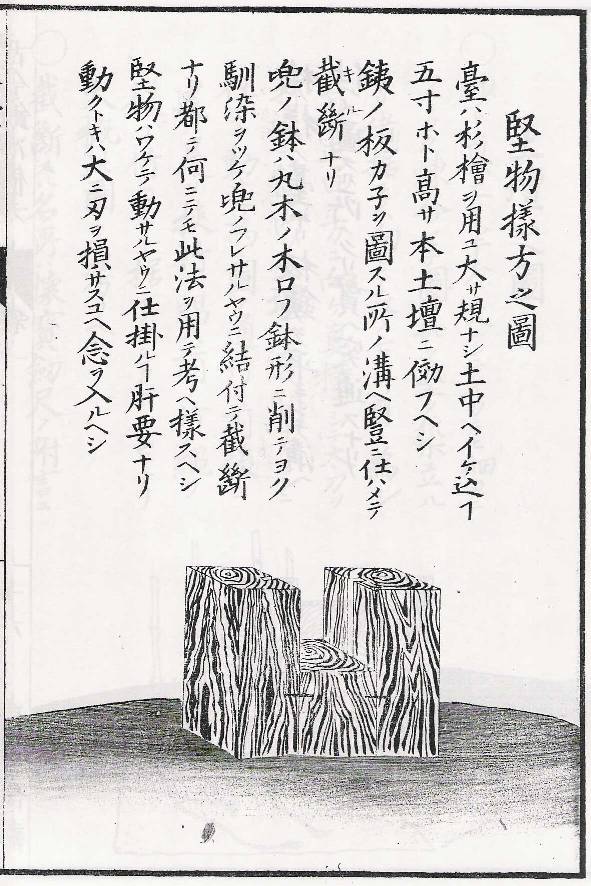 堅物様方之圖
臺ハ杉檜ヲ用ユ大サ規ナシ土中ヘイケ込ヿ
五寸ホト高サ本土壇ニ傚フヘシ
銕ノ板カ子シ圖スル所ノ溝ヘ竪ニ仕ハメテ
截斷ナリ
キル
兜ノ鉢ハ丸木ノ木口フ鉢形ニ削テヨク
馴染ヲツケ兜ノフレサルヤウニ結付テ截斷
ナリ都テ何ニテモ此法ヲ用テ考ヘ様スヘシ
堅物ハワケテ動サルヤウニ仕掛ルヿ肝要ナリ
動クトキハ大ニ刃ヲ損ハサスユヘ念ヲ入ルヘシ